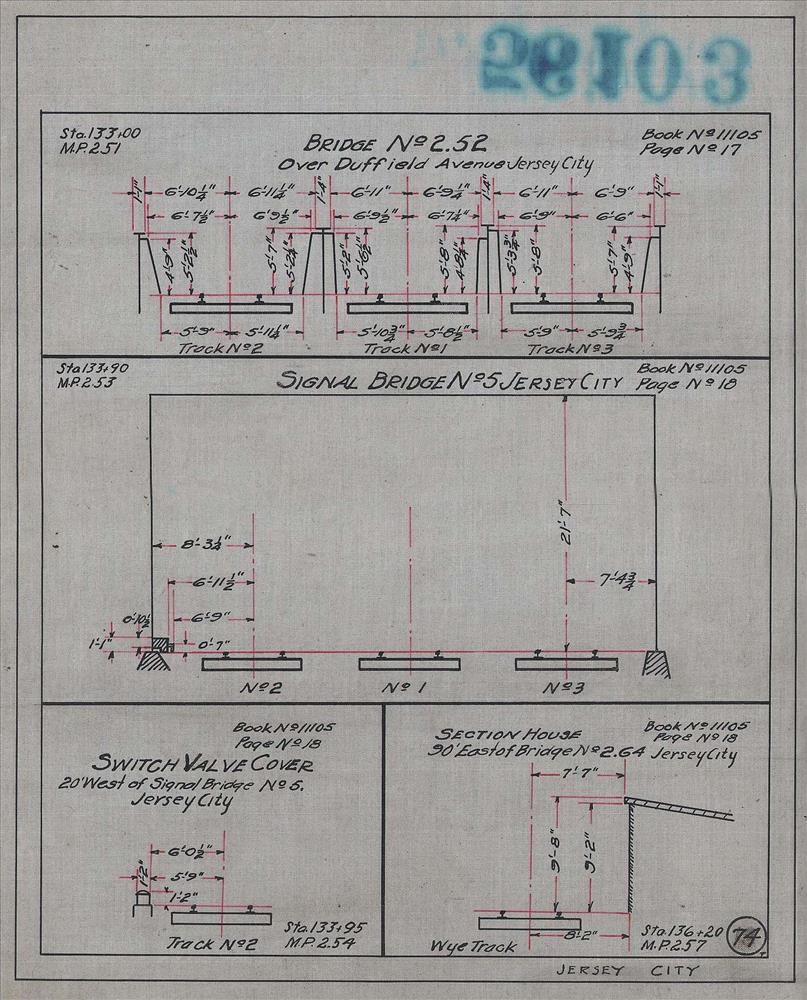 Sta.133+00
M.P.2.51
BRIDGE Nº 2.52
Over Duffield Avenue Jersey City
Book Nº 11105
Page Nº 17
1'-1" 6'-10¼" 6'-11¼" 1'-4" 6'-11" 6'-9¼" 1'-4" 6'-11" 6'-9" 1'-1"
6'-7½" 6'9½" 6'-9½" 6'-7¼" 6'-9" 6'-6"
4'-9" 5'-2½" 5'-7" 5'-2¼" 5'-2" 5'-6½" 5'-8" 5'-3¾" 5'-8" 5'-7" 4'-9"
5'-9" 5'-11¼" 5'-10¾" 5'-8½" 5'-9" 5'-9¾"
Track Nº 2 Track Nº 1 Track Nº 3
Sta 133+90
M.P. 2.53
SIGNAL BRIDGE Nº 5 JERSEY CITY
Book Nº 11105
Page Nº 18
21'-7"
8'-3¼"
6'-11½"
7'-4¾"
6'-9"
0'-10½"
1'-1"
0'-7"
Nº 2 Nº 1 Nº 3
Book Nº 11105
Page Nº 18
SWITCH VALVE COVER
20' West of Signal Bridge Nº 5.
Jersey City
6'-0½"
5'-9"
1'-2"
1'-2"
Track Nº 2
Sta.133+95
M.P. 2.54
SECTION HOUSE
90' East of Bridge Nº 2.64 Jersey City
Book Nº 11105
Page Nº 18
7'-7"
9'-8"
9'-2"
8'-2"
Wye Track
Sta.136+20
M.P. 2.57
74
JERSEY CITY